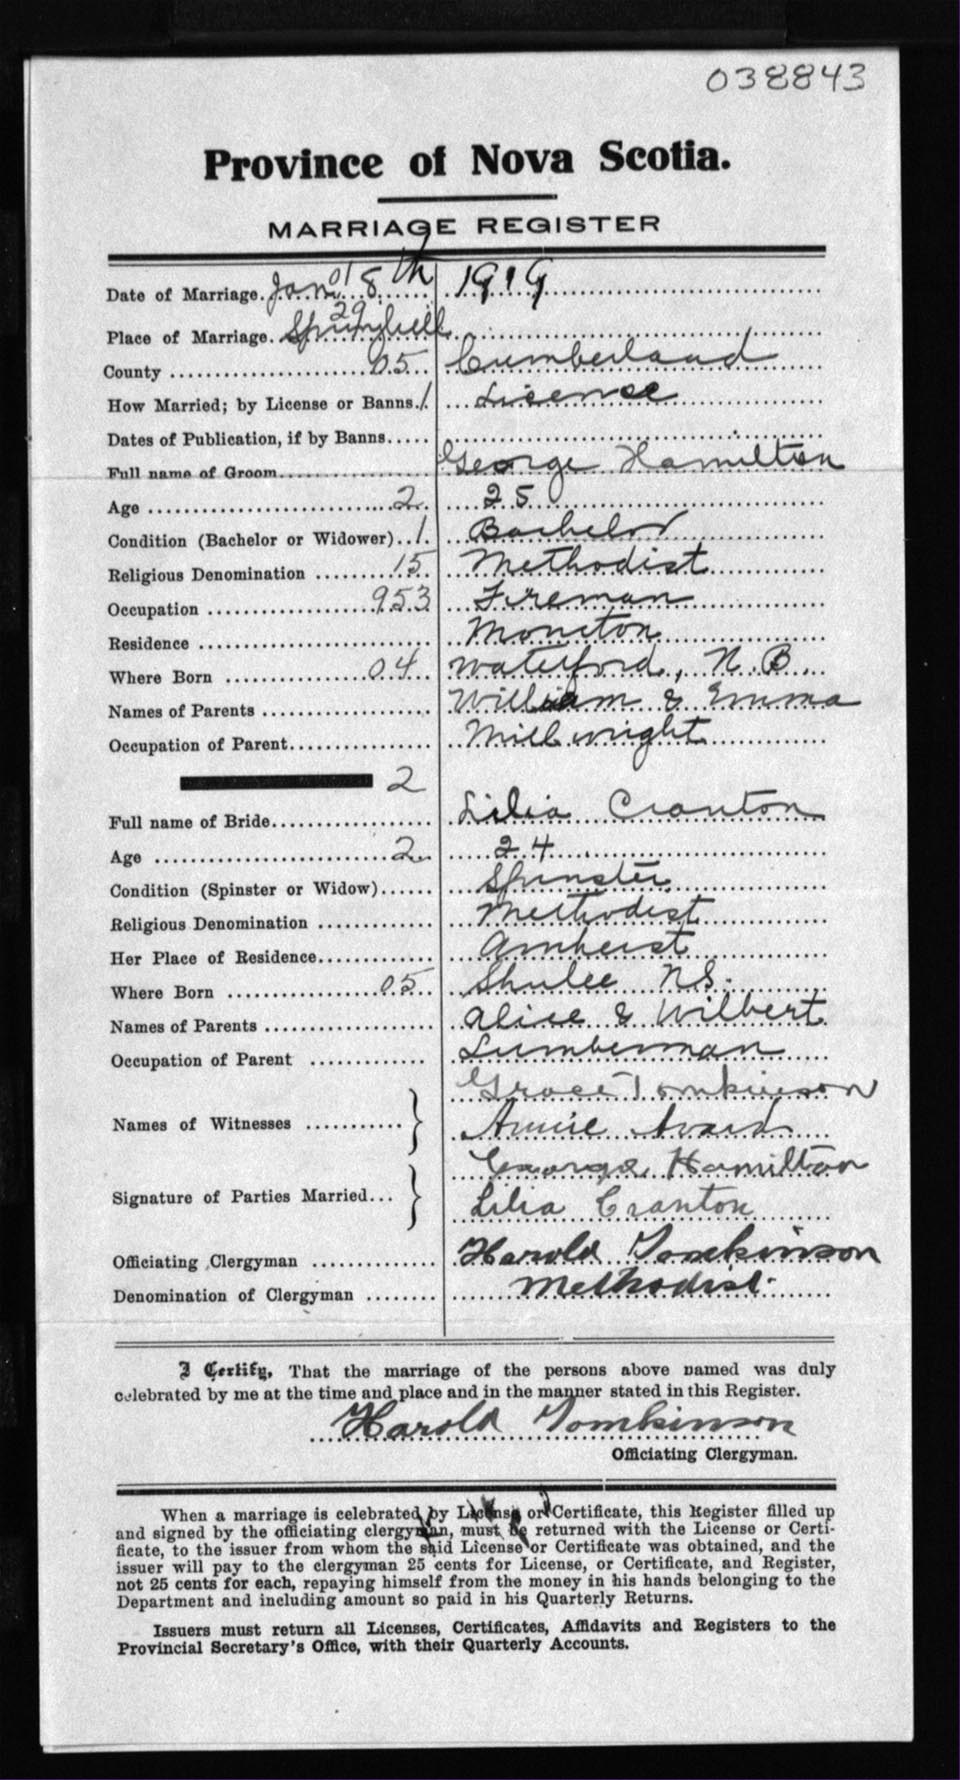 038843
Province of Nova Scotia.
MARRIAGE REGISTER
Date of Marriage. Jan. 01 8th 1919
Place of Marriage. 29 Springhill
County 05 Cumberland
How Married; by License or Banns. 1 License
Dates of Publication, if by Banns
Full name of Groom George Hamilton
Age 2 25
Condition (Bachelor or Widower) 1 Bachelor
Religious Denomination 15 Methodist
Occupation 953 Fireman
Residence Moncton
Where Born 04 Waterford, N.B.
Names of Parents William & Emma
Occupation of Parent Millwright
2
Full name of Bride Lilia Cranton
Age 2 24
Condition (Spinster or Widow) Spinster
Religious Denomination Methodist
Her Place of Residence Amherst
Where Born 05 Shulee NS.
Names of Parents Alice & Wilbert
Occupation of Parent Lumberman
Grace Tomkinson
Names of Witnesses } Annie Avard
George Hamilton
Signature of Parties Married } Lilia Cranton
Officiating Clergyman Harold Tomkinson
Denomination of Clergyman Methodist.
I Certify, That the marriage of the persons above named was duly
celebrated by me at the time and place and in the manner stated in this Register.
Harold Tomkinson
Officiating Clergyman.
When a marriage is celebrated by License or Certificate, this Register filled up
and signed by the officiating clergyman, must be returned with the License or Certi-
ficate, to the issuer from whom the said License or Certificate was obtained, and the
issuer will pay to the clergyman 25 cents for License, or Certificate, and Register,
not 25 cents for each, repaying himself from the money in his hands belonging to the
Department and including amount so paid in his Quarterly Returns.
Issuers must return all Licenses, Certificates, Affidavits and Registers to the
Provincial Secretary's Office, with their Quarterly Accounts.